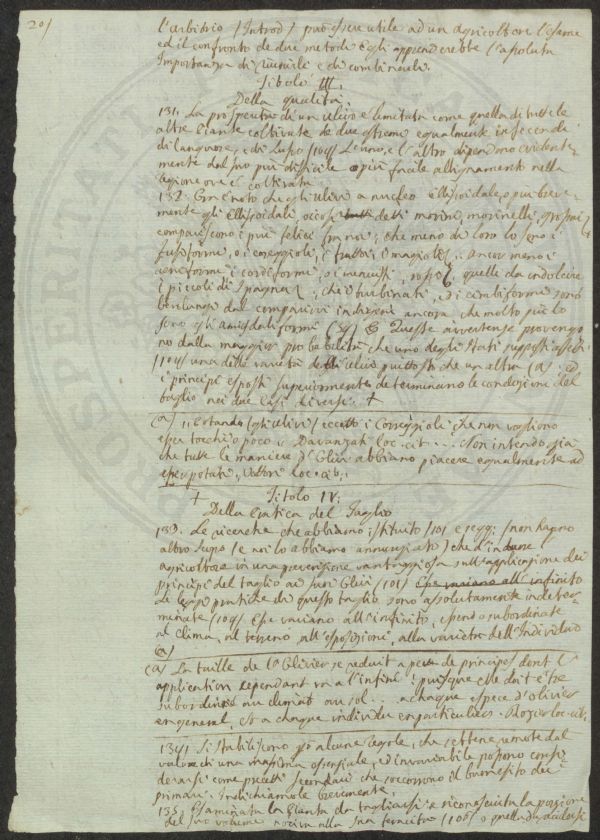 201
l'arbitrio (Introd) può essere utile ad un agricoltore l'esame
ed il confronto de due metodi egli apprenderebbe l'assoluta
Importanza di e di combinarli.
Titolo III.
Della qualità.
131. La prosperità di un ulivo è limitata come quella di tutte le
altre Piante coltivate da due estremi egualmente infecondi
di languore, e di lusso (104) L'uno, e l'altro dipendono evidente-
mente dal suo più difficile o più facile allignamento nella
Regione ove è coltivata
132. Ora è noto che gli ulivi a nucleo ellissoidale, o più breve-
mente gli ellissoidali, ossia detti morini, morinelli, grossai
compariscono i più felici fra noi; che meno di loro lo sono i
fusiformi, o i coreggioli, i frattoj, o magioli; ancor meno i
coniformi i cordiformi, o i e quelle da indolcire
i piccoli di Spagna, che i turbinati, ed i cimbiformi sono
dal comparirvi indizioni ancora che molto più lo
sono gli amigdaliformi (34) Queste avvertenze provengo
no dalla maggior probabilità che uno degli stati supposti
(104) una delle varietà dell'ulivo piuttosto che un altra (a) ed
i principj esposti superiormente determinano le condizioni del
taglio nei due casi diversi. +
(a) Potando (gli ulivi) eccetto i Coreggioli che non vogliono
esser tocchi o poco. Davanzati loc. cit. ... Non intendo già
che tutte le maniere d'Ulivi abbiano piacere egualmente ad
esser potati, Vettori loc. cit.
+ Titolo IV.
Della Pratica del Taglio
133. Le ricerche che abbiamo istituito (101 e segg.) non hanno
altro scopo (e noi lo abbiamo annunziato) che d'indurre
agricoltore in una prevenzione vantaggiosa sull'applicazione dei
principj del taglio ai suoi Ulivi (101) Che variano all'infinito
di pratiche di questo taglio, sono assolutamente indeter-
minate (104) Che variano all'infinito, essendo subordinate
al clima, al terreno all'esposizione, alla varietà dell'Individuo
(a)
(a) La taille de l'Olivier se reduit a peu de principes dont l'
application cependant va a l'infini; puisque elle doit etre
subordinée au climat au sol ... a chaque espece d'olivier
en general, et a chaque individu en particulier. Rozier loc. cit.
134. Si stabiliscono però alcune regole, che sebbene remote dal
valore di una massima essenziale, ed invariabile possono consi-
derarsi come precetti secondari che soccorrono il buon esito dei
primari. Indichiamole brevemente.
135. Esaminata la Pianta da tagliarsi e riconosciuta la porzione
del suo volume nociva alla sua feracità (106) o quella da